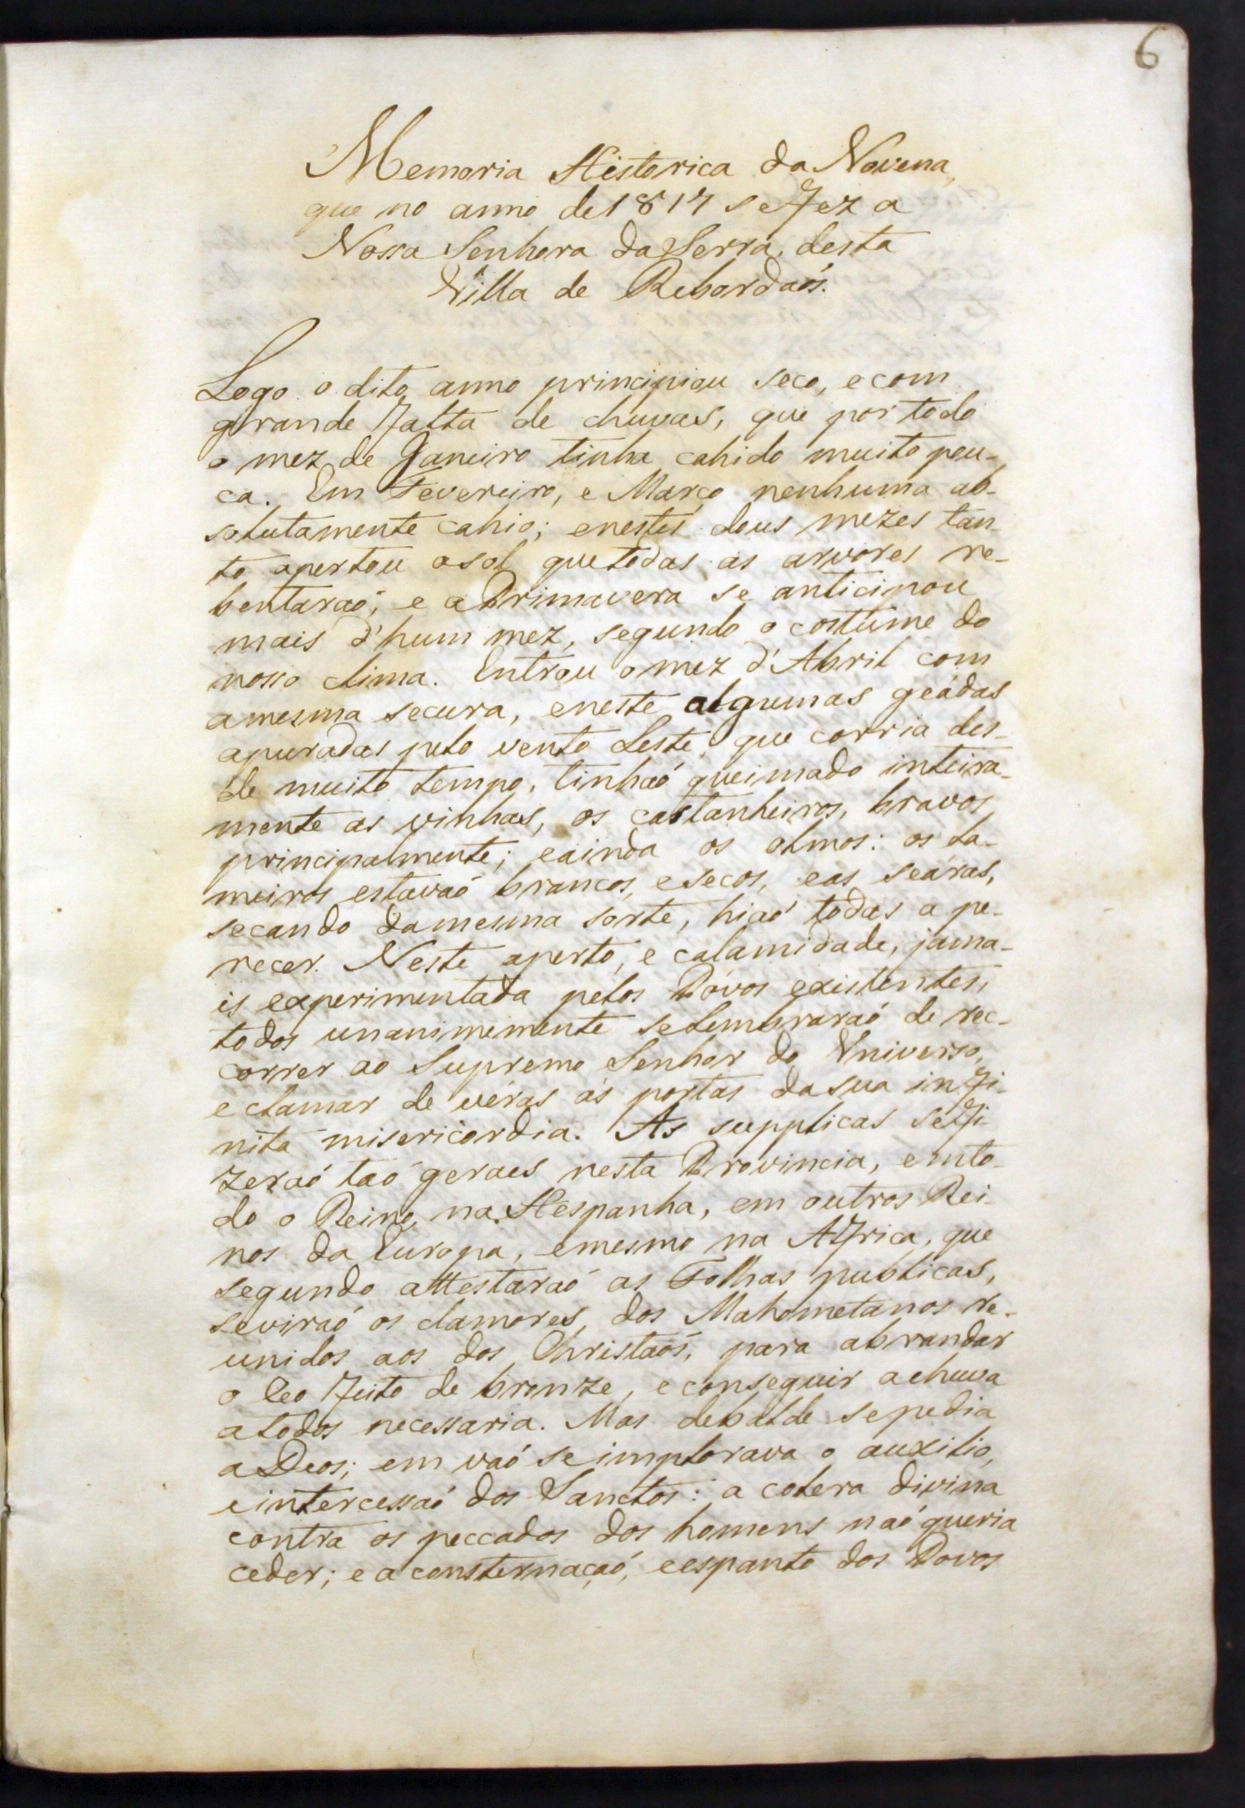 6
Memoria Historica da Novena,
que no anno de 1817 se fez a
Nossa Senhora da Serra, desta
Villa de Rebordaõs.
Logo o dito anno principiou seco, e com
grande falta de chuvas, que por todo
o mez de Janeiro tinha cahido muito pou-
ca. Em Fevereiro, e Março nenhuma ab-
solutamente cahio; e nestes dous mezes tan-
to apertou o sol que todas as arvores re-
bentaraõ; e a Primavera se anticipou
mais d'hum mez, segundo o costume do
nosso clima. Entrou o mez d'Abril com
a mesma secura, e neste algumas geádas
apuradas pelo vento Leste, que corria des-
de muito tempo, tinhaõ queimado inteira-
mente as vinhas, os castanheiros, bravos
principalmente; e ainda os olmos: os la-
meiros estavaõ brancos, e secos, e as seáras,
secando da mesma sorte, hiaõ todas a pe-
recer. Neste aperto, e calamidade, jama-
is experimentada pelos Póvos existentes,
todos unanimemente se lembraraõ de rec-
correr ao Supremo Senhor do Vniverso,
e clamar de véras ás portas da sua infi-
nita misericordia. As supplicas se fi-
zeraõ taõ geraes nesta Provincia, e em to-
do o Reino, na Hespanha, em outros Rei-
nos da Europa, e mesmo na Africa, que
segundo attestaraõ as Folhas publicas,
se viraõ os clamores, dos Mahometanos re-
unidos aos dos Christaõs, para abrandar
o Ceo feito de bronze, e conseguir a chuva
a todos necessaria. Mas debalde se pedia
a Deos; em vaõ se implorava o auxilio,
e intercessaõ dos Sanctos: a colera divina
contra os peccados dos homens naõ queria
ceder; e a consternaçaõ, e espanto dos Povos